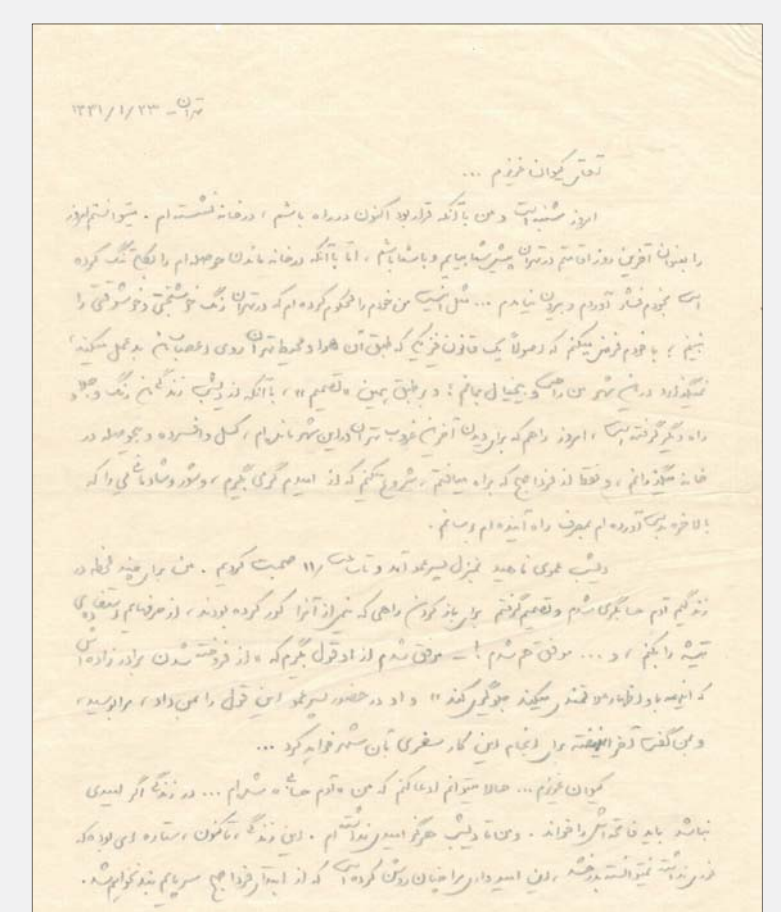 تهران - ۱۳۳۱/۱/۲۳
آقای کیوان عزیزم ...
امروز شنبه است و من با آنکه قرار بود اکنون در راه باشم ، در خانه نشسته‌ام . میتوانستم امروز
را بعنوان آخرین روز اقامتم در تهران پیش شما بیایم و با شما باشم ، اما با آنکه در خانه ماندن حوصله‌ام را بکلی تنگ کرده
است بخودم فشار آوردم و بیرون نیامدم ... مثل اینست من خودم را محکوم کرده‌ام که در تهران رنگ خوشبختی و خوشوقتی را
نبینم ؛ با خودم فرض میکنم که اصولاً یک قانون فیزیکی که طبق آن هوا و محیط تهران روی اعصاب من بد عمل میکند ،
نمیگذارد در این شهر من راحت و بیخیال بمانم ؛ و بر طبق همین «تصمیم» ، با آنکه از دیشب زندگی من رنگ و جلا و
راه دیگر گرفته است ، امروز را هم که برای دیدن آخرین غروب تهران در این شهر مانده‌ام ، کسل و افسرده و بیحوصله در
خانه میگذرانم ، و فقط از فردا صبح که براه میافتم ، شروع میکنم که از امیدم گرمی بگیرم ، و شور و شادمانی را که
بالاخره بدست آورده‌ام بمصرف راه آینده‌ام برسانم .
دیشب عموی ناهید بمنزل پسرعمو آمد و تا ساعت ۱۱ صحبت کردیم . من برای چند لحظه در
زندگیم آدم حسابگری شدم و تصمیم گرفتم برای باز کردن راهی که خیر از آنرا کور کرده بودند ، از حرفهایم استفاده‌ی
تیشه را بکنم ، و ... موفق هم شدم ! ـ موفق شدم از او قول بگیرم که «از فروخته شدن برادرزاده‌اش
که اینهمه باو اظهار علاقمندی میکند جلوگیری کند» و او در حضور پسرعمو این قول را بمن داد ، مرا بوسید ،
و بمن گفت آخر این هفته برای انجام این کار سفری بآن شهر خواهد کرد ...
کیوان عزیزم ... حالا میتوانم ادعا کنم که من «آدم حسابی» شده‌ام ... در زندگی اگر امیدی
نباشد باید فاتحه‌اش را خواند . و من تا دیشب هرگز امیدی نداشته‌ام . این زندگی ، تاکنون ، ستاره‌ای بوده که
نوری نداشته نمیتوانسته بدرخشد . این امیدواری مرا چنان روشن کرده است که از ابتدای فردا صبح سر پایم بند نخواهم شد .